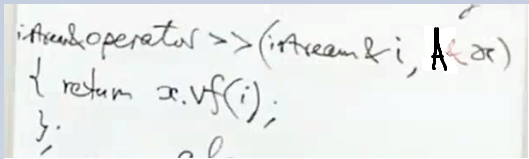 istream& operator >> (istream& i, A& x)
{ return x.vf(i);
};